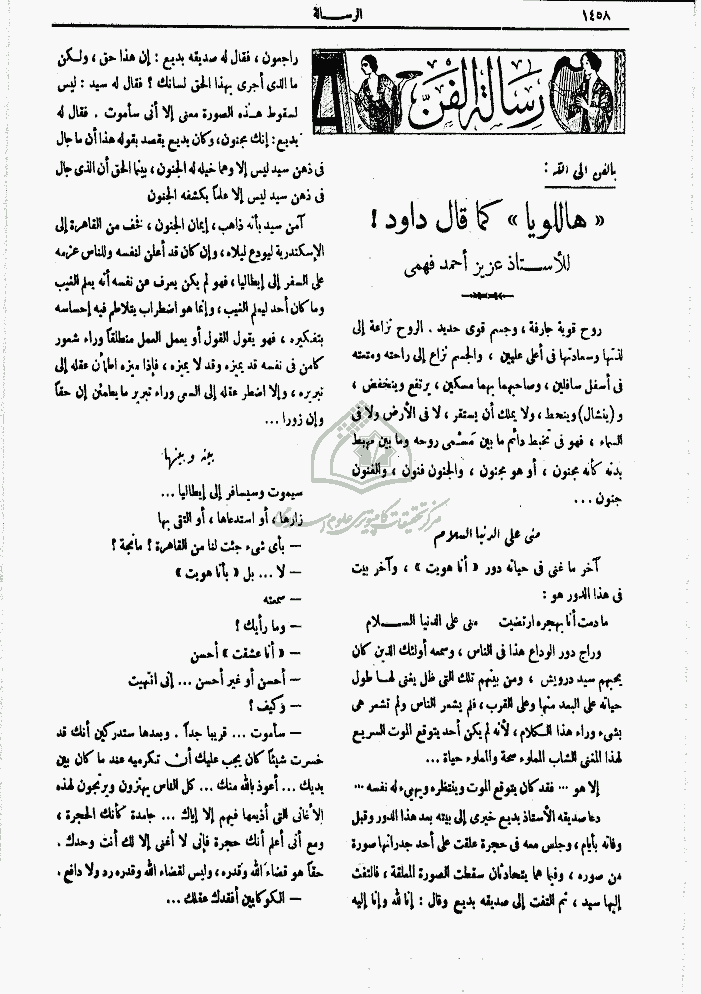 ١٤٥٨
الرسالة
رسالة الفن
بالفن الى الله :
« هاللويا » كما قال داود !
للأستاذ عزيز أحمد فهمى
روح قوية جارفة ، وجسم قوى حديد . الروح نزاعة إلى
لذتها وسعادتها فى أعلى عليين ، والجسم نزاع إلى راحته ومتعته
فى أسفل سافلين ، وصاحبهما بهما مسكين ، يرتفع وينخفض ،
و (ينشال) وينحط ، ولا يملك أن يستقر ، لا فى الأرض ولا فى
السماء ، فهو فى تخبط دائم ما بين مَسْمى روحه وما بين مهبط
بدنه كأنه مجنون ، أو هو مجنون ، والجنون فنون ، والفنون
جنون ...
منى على الدنيا السلام
آخر ما غنى فى حياته دور « أنا هويت » ، وآخر بيت
فى هذا الدور هو :
ما دمت أنا بهجره ارتضيت منى على الدنيا الســلام
وراج دور الوداع هذا فى الناس ، وسمعه أولئك الذين كان
يحبهم سيد درويش ، ومن بينهم تلك التى ظل يغنى لهـا طول
حياته على البعد منها وعلى القرب ، فلم يشعر الناس ولم تشعر هى
بشىء وراء هذا الكلام ، لأنه لم يكن أحد يتوقع الموت السريع
لهذا المغنى الشاب المملوء صحة والمملوء حياة ...
إلا هو ... فقد كان يتوقع الموت وينتظره ويهيىء له نفسه ...
دعا صديقه الأستاذ بديع خيرى إلى بيته بعد هذا الدور وقبل
وفاته بأيام ، وجلس معه فى حجرة علقت على أحد جدرانها صورة
من صوره ، وفيما هما يتحادثان سقطت الصورة المعلقة ، فالتفت
إليها سيد ، ثم التفت إلى صديقه بديع وقال : إنا لله وإنا إليه
راجعون ، فقال له صديقه بديع : إن هذا حق ، ولـكن
ما الذى أجرى بهذا الحق لسانك ؟ فقال له سيد : ليس
لسقوط هـذه الصورة معنى إلا أنى سأموت . فقال له
بديع : إنك مجنون ، وكان بديع يقصد بقوله هذا أن ما جال
فى ذهن سيد ليس إلا وهما خيله له الجنون ، بينما الحق أن الذى جال
فى ذهن سيد ليس إلا علماً يكشفه الجنون
آمن سيد بأنه ذاهب ، إيمان الجنون ، فخف من القاهرة إلى
الإسكندرية ليودع ليلاه ، وإن كان قد أعلن لنفسه وللناس عزمه
على السفر إلى إيطاليا ، فهو لم يكن يعرف عن نفسه أنه يعلم الغيب
وما كان أحد ليعلم الغيب ، وإنما هو اضطراب يتلاطم فيه إحساسه
بتفكيره ، فهو يقول القول أو يعمل العمل منطلقاً وراء شعور
كامن فى نفسه قد يميزه وقد لا يميزه ، فإذا ميزه اطمأن عقله إلى
تبريره ، وإلا اضطر عقله إلى السعى وراء تبرير ما يطمئن إن حقاً
وإن زورا ...
بينه وبينها
سيموت وسيسافر إلى إيطاليا ...
زارها ، أو استدعاها ، أو التقى بها
— بأى شىء جئت لنا من القاهرة ؟ مانجة ؟
— لا ... بل « بأنا هويت »
— سمعته
— وما رأيك ؟
— « أنا عشقت » أحسن
— أحسن أو غير أحسن ... إنى انتهيت
— وكيف ؟
— سأموت ... قريبا جداً . وبعدها ستدركين أنك قد
خسرت شيئاً كان يجب عليك أن تكرميه عند ما كان بين
يديك ... أعوذ بالله منك ... كل الناس يهتزون ويرتجون لهذه
الأغانى التى أذيعها فيهم إلا إياك ... جامدة كأنك الحجرة ،
ومع أنى أعلم أنك حجرة فإنى لا أغنى إلا لك أنت وحدك .
حقاً هو قضاء الله وقدره ، وليس لقضاء الله وقدره رد ولا دافع .
— الكوكايين أفقدك عقلك ...
مركز تحقيقات كامپيوترى علوم اسلامى